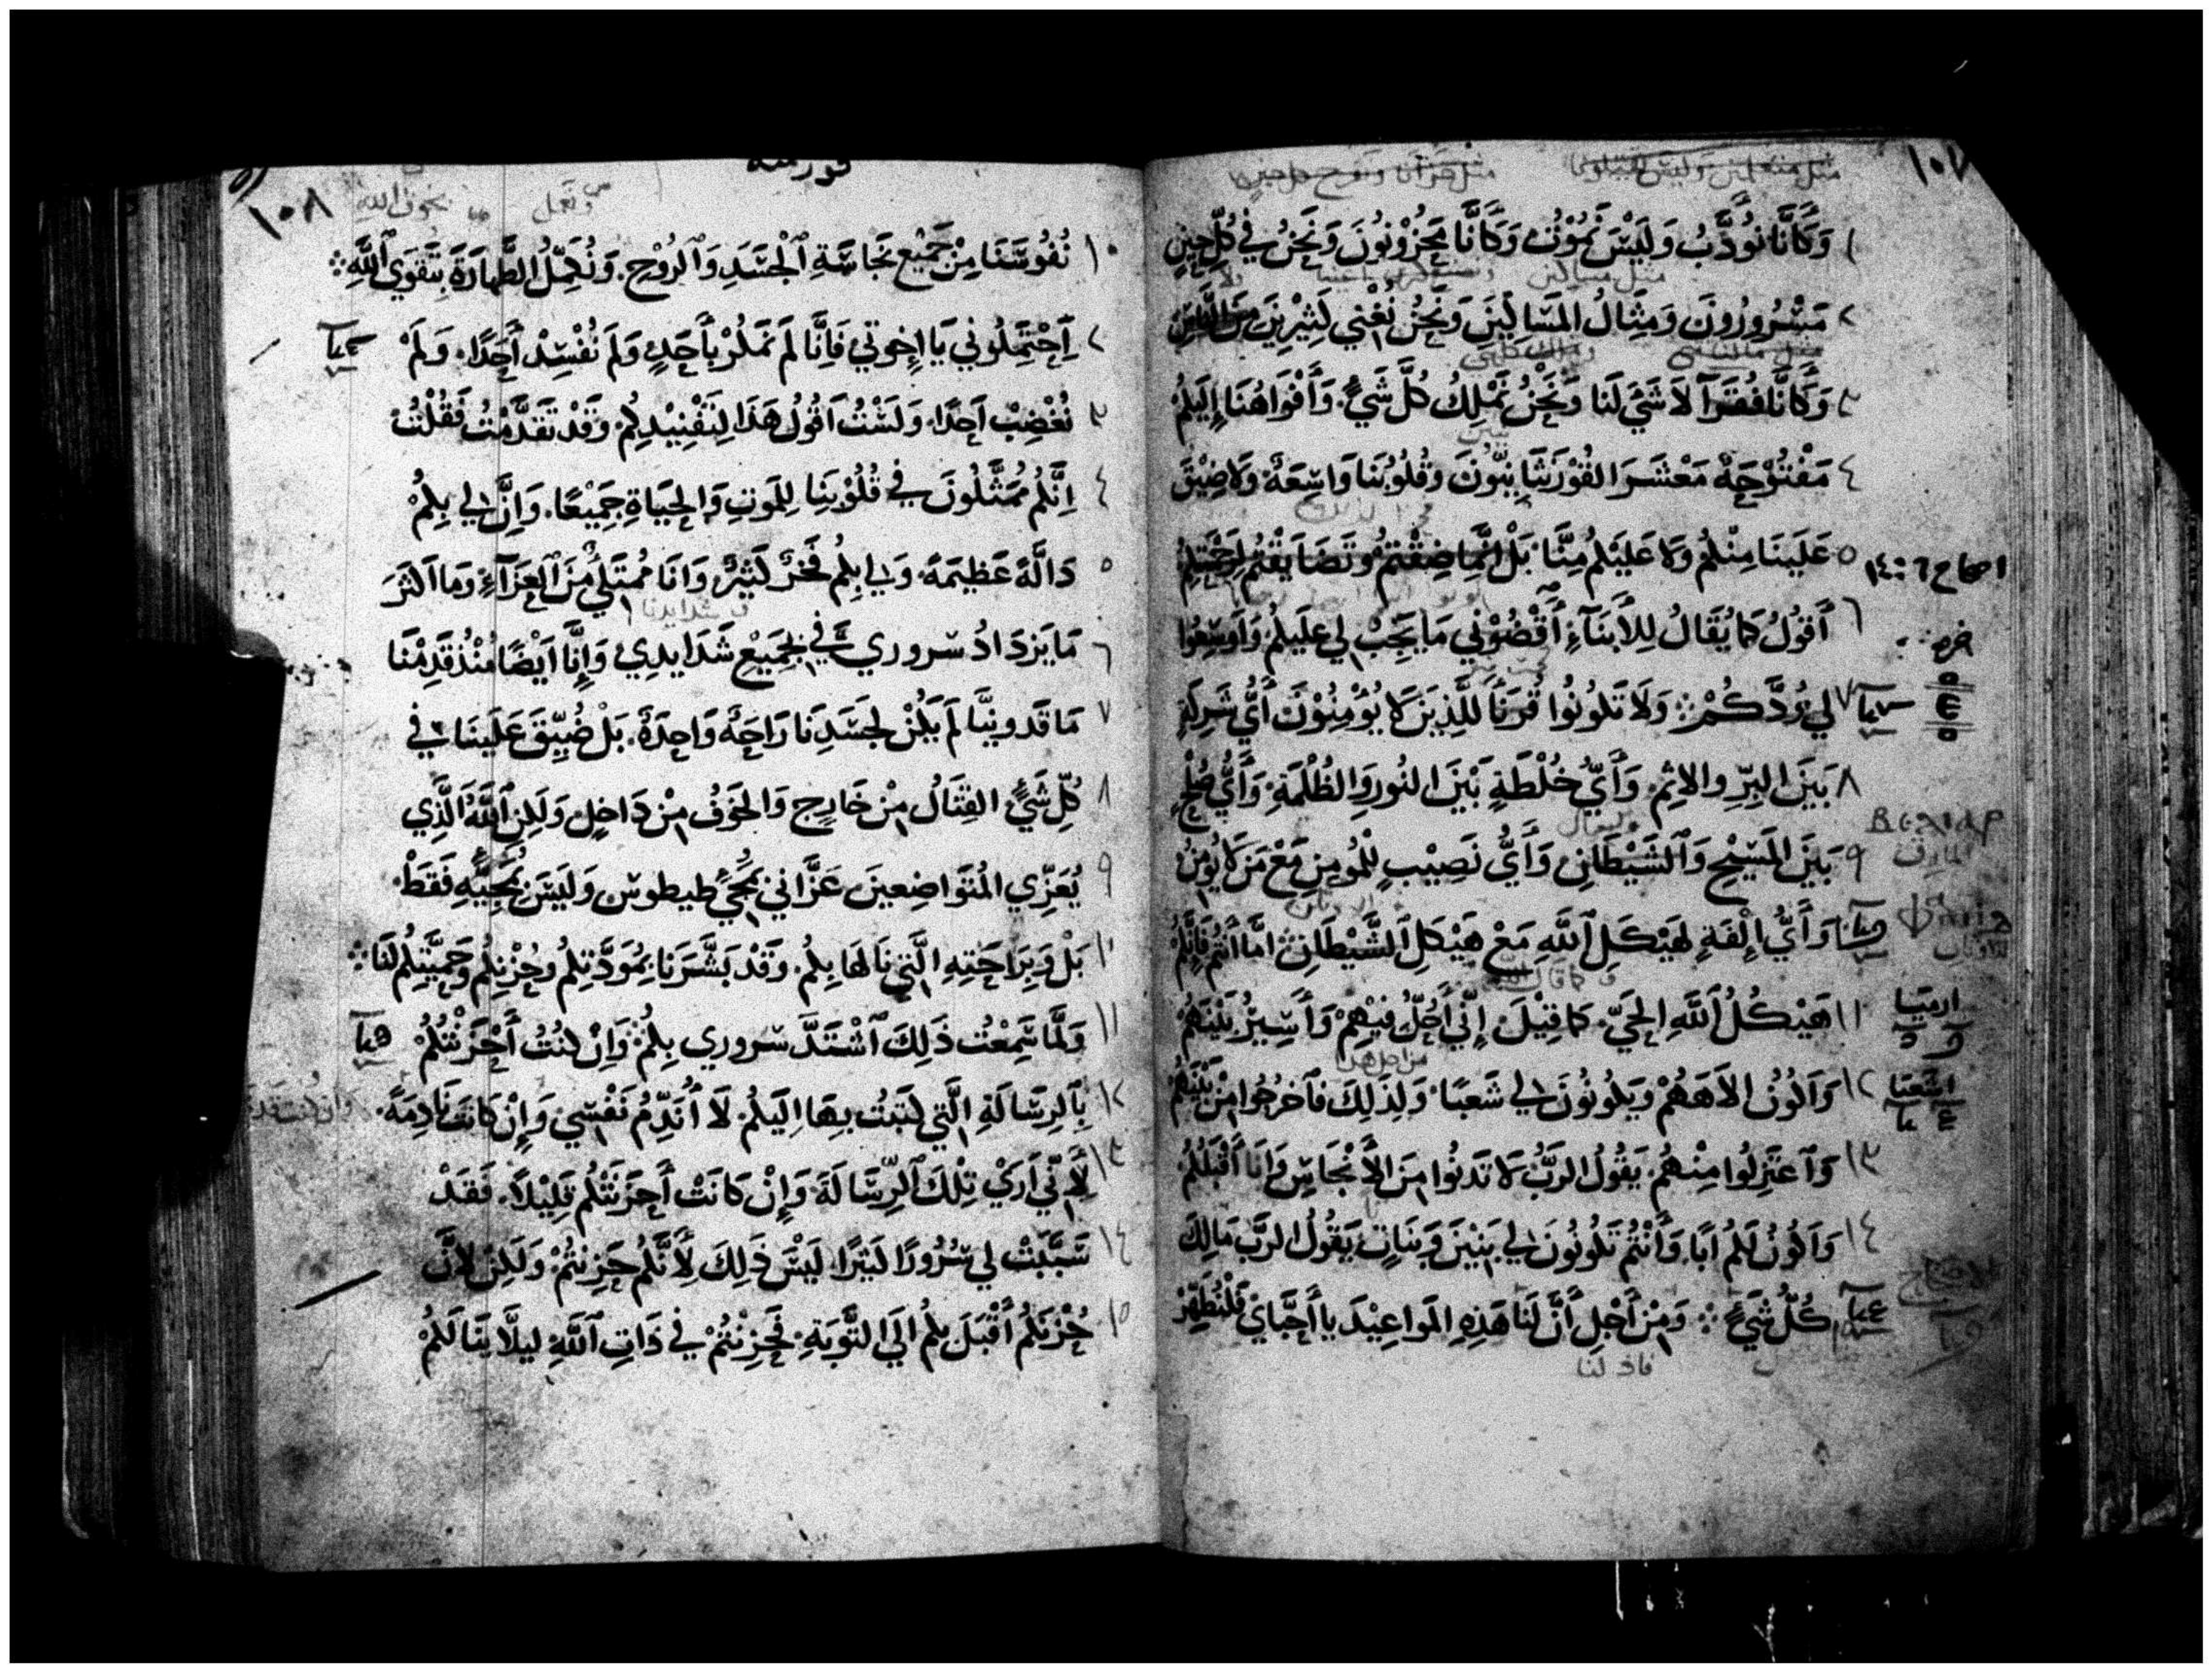 ١٠٧
١ وَكَأَنَّا نُوَدَّبُ وَلَيْسَ نَمُوْتُ وَكَأَنَّا مَحْزُوْنُونَ وَنَحْنُ فِي كُلِّ حِيْنٍ
٢ مَسْرُورُونَ وَمِثَالُ المَسَاكِيْنِ وَنَحْنُ نُغْنِي كَثِيْرِيْنَ
٣ وَكَأَنَّا فُقَرَآ لَا شَيَ لَنَا وَنَحْنُ نَمْلِكُ كُلَّ شَيْءٍ وَأَفْوَاهُنَا إِلَيْكُمْ
٤ مَفْتُوْحَةٌ مَعْشَرَ القُوْرَنْثَانِيُّونَ وَقُلُوبُنَا وَاسِعَةٌ وَلَا ضِيْقَ
٥ عَلَيْنَا مِنْكُمْ وَلَا عَلَيْكُمْ مِنَّا بَلْ إِنَّمَا ضِقْتُمْ وَتَضَايَقْتُمْ
اصحاح ٦ : ١٤
٦ أَقُولُ كَمَا يُقَالُ لِلأَبْنَآءِ أَقْضُوْنِي مَا يَجِبُ لِي عَلَيْكُمْ وَأَوْسِعُوا
٧ لِي وُدَّكُمْ ۞ وَلَا تَكُونُوا قُرَنَآ لِلَّذِيْنَ لَا يُوْمِنُوْنَ أَيُّ شَرِكَةٍ
٨ بَيْنَ البِرِّ وَالاثِمِ وَأَيُّ خُلْطَةٍ بَيْنَ النُورِ وَالظُلْمَةِ وَأَيُّ صُلْحٍ
٩ بَيْنَ المَسِيْحِ وَالشَيْطَانِ وَأَيُّ نَصِيْبٍ لِلْمُومِنِ مَعْ مَنْ لَا يُومِنُ
وَأَيُّ إِلْفَةٍ لِهَيْكَلِ اللَّهِ مَعْ هَيْكَلِ الشَّيْطَانِ امَّا انْتُمْ فَإِنَّكُمْ
١١ هَيْكَلُ اللَّهِ الحَيِّ كَمَا قِيْلَ إِنِّي أَحُلُّ فِيْهِمْ وَأَسِيْرُ بَيْنَهُمْ
١٢ وَاكُونُ الَاهَهُمْ وَيَكُونُونَ لِي شَعْبًا وَلِذَلِكَ فَاخْرُجُوا مِنْ بَيْنِهِمْ
اشعيا
١٣ وَاعْتَزِلُوا مِنْهُمْ يَقُولُ الرَبُّ لَا تَدْنُوا مِنَ الأَنْجَاسِ وَانَا أَقْبَلُكُمْ
١٤ وَاكُونُ لَكُمْ ابًا وَأَنْتُمْ تَكُونُونَ لِي بَنِيْنَ وَبَنَاتٍ يَقُولُ الرَبُّ مَالِكُ
كُلِّ شَيْءٍ ۞ وَمِنْ أَجْلِ أَنَّ لَنَا هَذِهِ المَوَاعِيْدَ يَا أَحِبَّايَ فَلْنُطَهِّرْ
١٠٨
١ نُفُوسَنَا مِنْ جَمِيْعِ نَجَاسَةِ الْجَسَدِ وَالرُوْحِ وَنُكَمِّلُ الطَّهَارَةَ بِتَقْوَى اللَّهِ ۞
٢ اِحْتَمِلُونِي يَا إِخوَتِي فَإِنَّا لَمْ نَمْكُرْ بِأَحَدٍ وَلَمْ نُفْسِدْ أَحَدًا وَلَمْ
٣ نُغْضِبْ أَحَدًا وَلَسْتُ اَقُولُ هَذَا لِتَفْنِيْدِكُمْ وَقَدْ تَقَدَّمْتُ فَقُلْتُ
٤ اِنَّكُمْ مُمَثَّلُونَ فِي قُلُوْبِنَا لِلْمَوتِ وَالحَيَاةِ جَمِيْعًا وَاِنَّ لِي بِكُمْ
٥ دَالَّةً عَظِيمَةً وَلِي بِكُمْ فَخْرٌ كَثِيْرٌ وَانَا مُمْتَلِئٌ مِنَ العَزَآءِ وَمَا اَكْثَرَ
٦ مَا يَزْدَادُ سروري فِي جَمِيْعِ شَدَايدِي وَإِنَّا أَيْضًا مُنْذُ قَدِمْنَا
٧ مَاقَدونِيَّا لَمْ يَكُنْ لِجَسَدِنَا رَاحَةٌ وَاحِدَةٌ بَلْ ضُيِّقَ عَلَيْنَا فِي
٨ كُلِّ شَيْءٍ القِتَالُ مِنْ خَارِجٍ وَالخَوْفُ مِنْ دَاخِلٍ وَلَكِنِ اللَّهُ الَّذِي
٩ يُعَزِّي المُتَوَاضِعِينَ عَزَّانِي بِمَجِيْءِ طيطوس وَلَيْسَ بِمَجِيِّهِ فَقَطْ
١٠ بَلْ وَبِرَاحَتِهِ الَّتِي نَالَهَا بِكُمْ وَقَدْ بَشَّرَنَا بِمَوَدَّتِكُمْ وَحُزْنِكُمْ وَحَمِيَّتِكُمْ لَنَا ۞
١١ وَلَمَّا سَمِعْتُ ذَلِكَ اشْتَدَّ سروري بِكُمْ وَاِنْ كُنْتُ أَحْزَنْتُكُمْ
١٢ بِالرِسَالَةِ الَّتِي كَتَبْتُ بِهَا اِلَيْكُمْ لَا أُنَدِّمُ نَفْسِي وَإِنْ كَانَتْ نَادِمَةً
١٣ لأَنِّي أَرَي تِلْكَ الرِّسَالَةَ وَإِنْ كَانَتْ أَحْزَنَتْكُمْ قَلِيْلاً فَقَدْ
١٤ سَبَّبَتْ لِي سُرُورًا كَثِيرًا لَيْسَ ذَلِكَ لِأَنَّكُمْ حَزِنْتُمْ وَلَكِنْ لِأَنَّ
١٥ حُزْنَكُمْ أَقْبَلَ بِكُمْ الَي التَّوْبَةِ فَحَزِنْتُمْ فِي ذَاتِ اللَّهِ لِيلَّا يَنَالَكُمْ